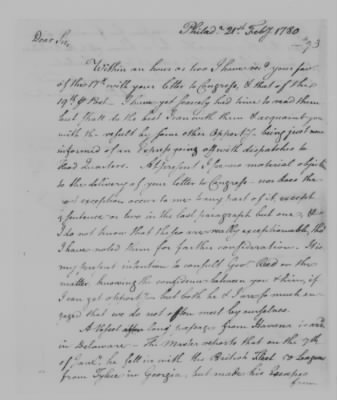 Philada 21st Feby 1780
Dear Sir,
Within an hour or two I have recd your favr
of the 17th with your letter to Congress, & that of the
19th I have yet scarcely had time to read them
but shall do the best I can with them & acquaint you
with the result by some other opporty being just now
informed of an Express going off with dispatches to
Head Quarters. At present I foresee no material objectn
to the delivery of your letter to Congress nor does the
exception occur to me to any part of it, except
a sentence or two in the last paragraph but one, &
I do not know that these are really exceptionable, tho
I have noted them for farther consideration. It is
my present intention to consult Genl on the
matter knowing the confidence between you & him, if
I can get opporty but both he & I are so much en-
gaged that we do not often meet by ourselves.
A Vessel after long passage from Havana is arrd
in Delaware — The Master reports that on the 7th
of Jany he fell in with the British Fleet 50 Leagues
from Tybee in Georgia, but made his Escape
from